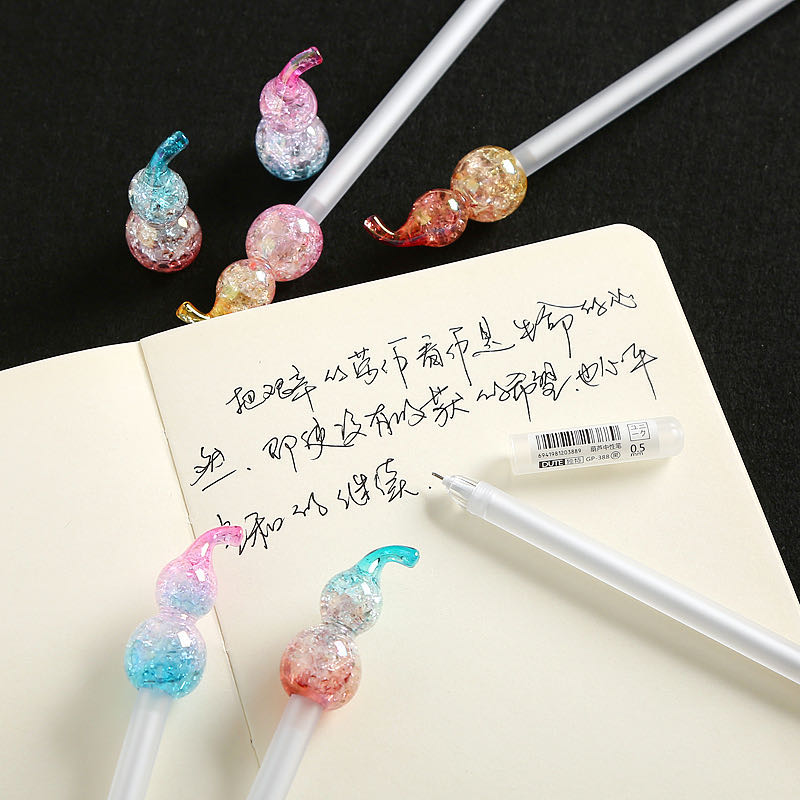 把艰辛的劳作看作是生命的必
然，即使没有收获的希望也心平
气和的继续.
6941981203889 葫芦中性笔
DUTE GP-388
0.5
mm